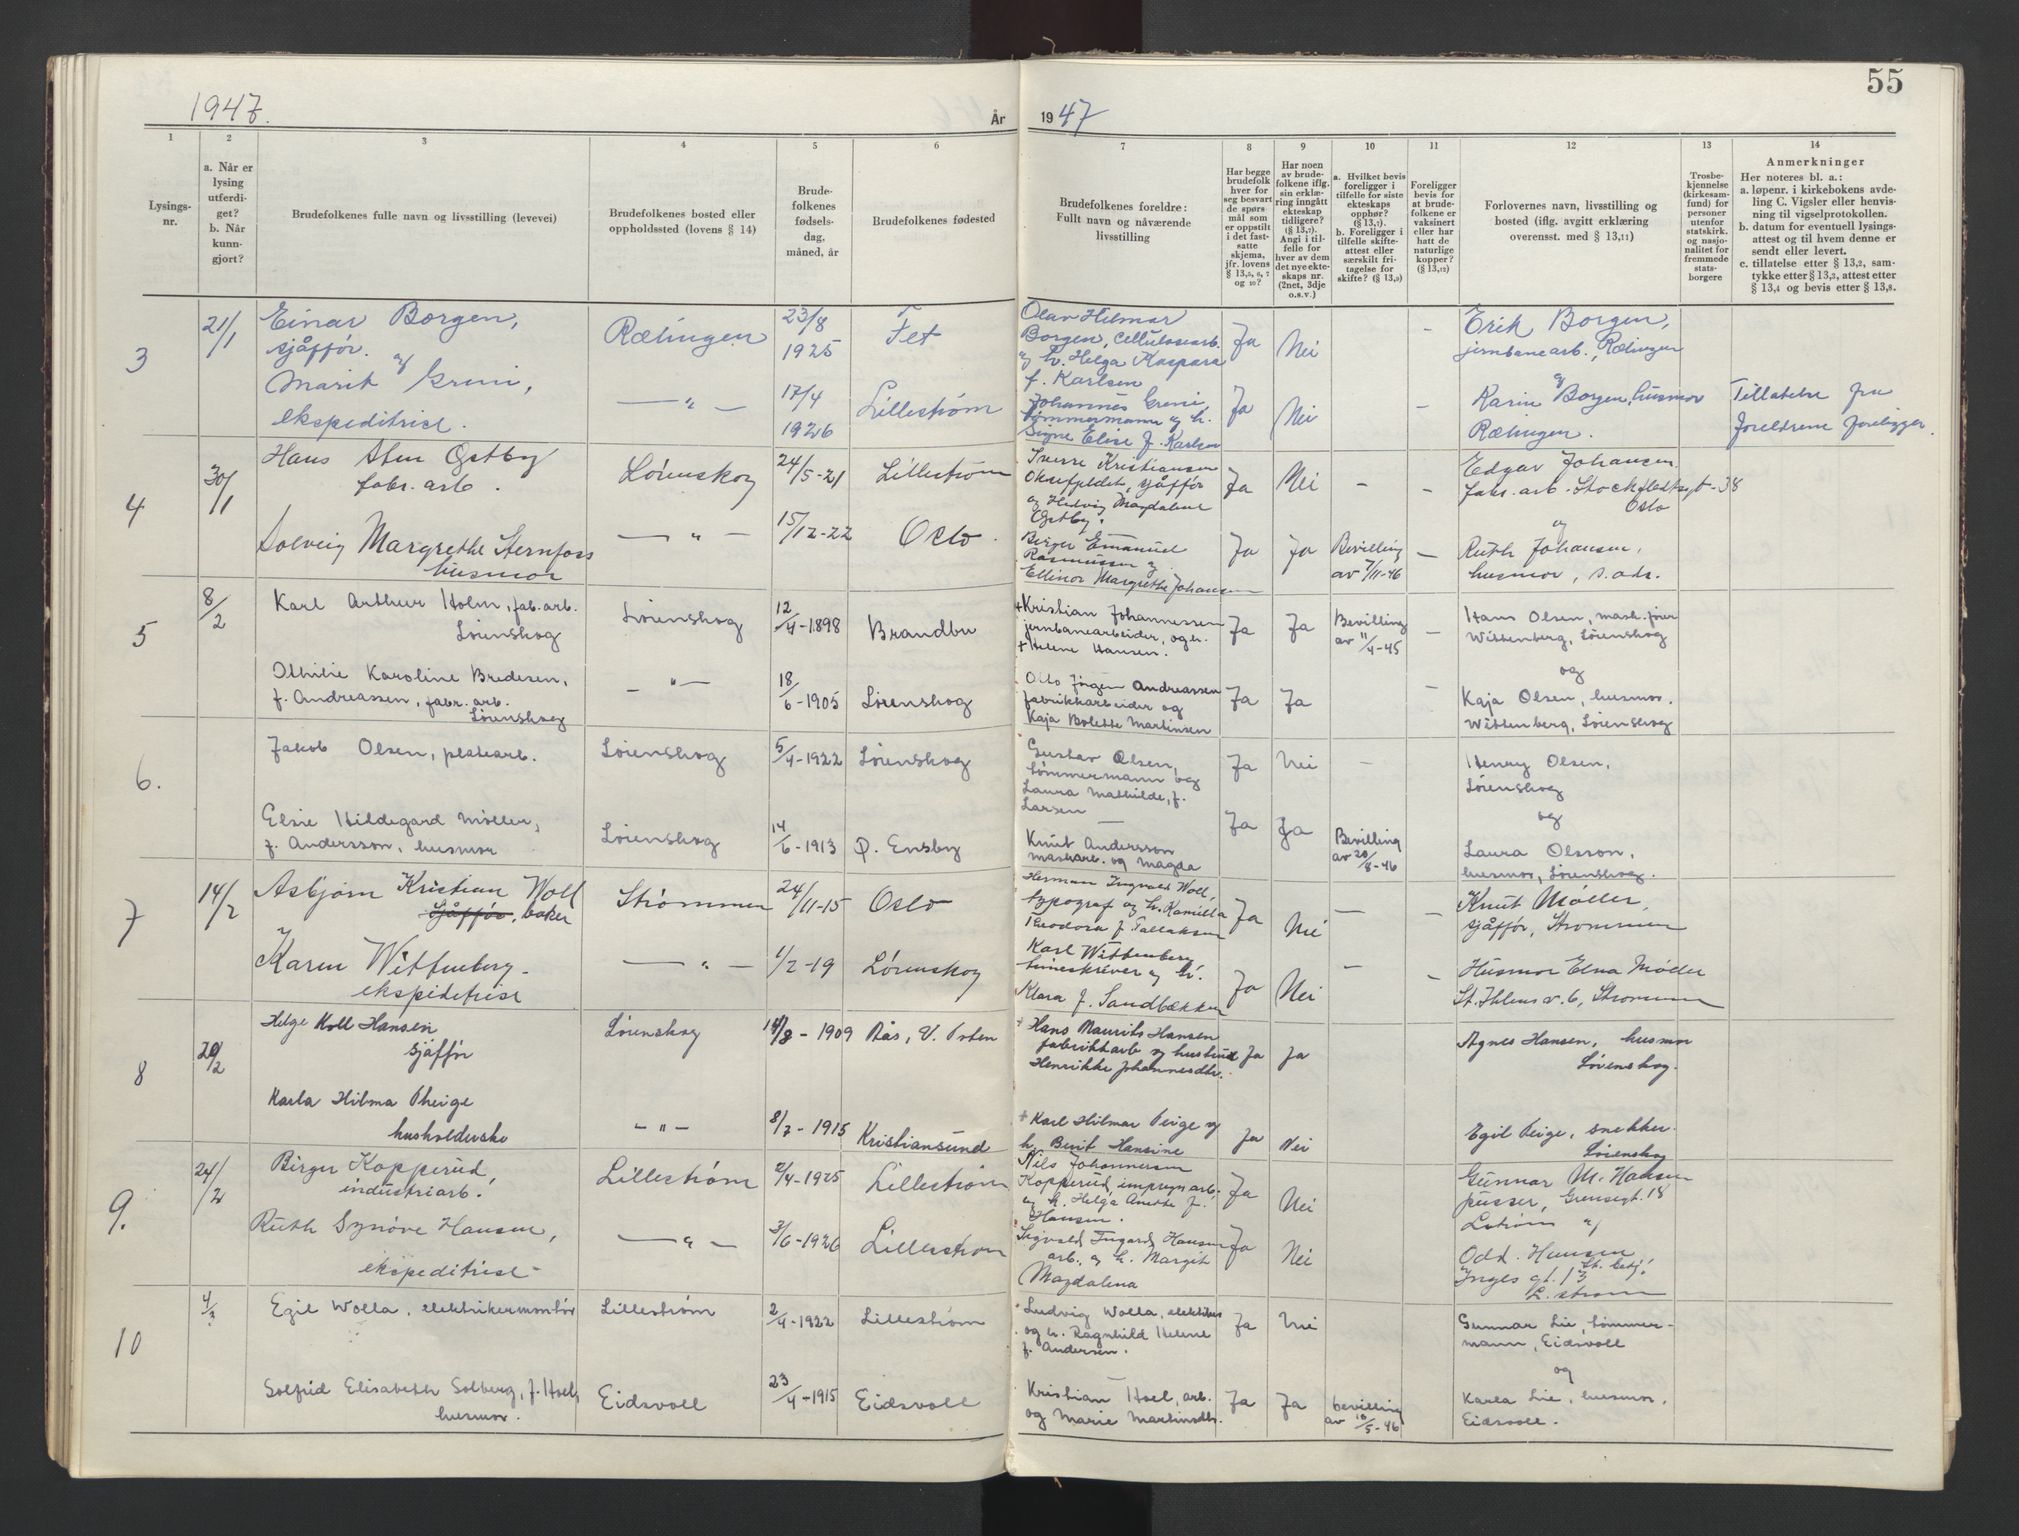 55
1947.
År
1947
1
2
3
4
5
6
7
8
9
10
11
12
13
14
Lysings-
nr.
a. Når er
lysing
utferdi-
get?
b. Når
kunn-
gjort?
Brudefolkenes fulle navn og livsstilling (levevei)
Brudefolkenes bosted eller
oppholdssted (lovens § 14)
Brude-
folkenes
fødsels-
dag,
måned, år
Brudefolkenes fødested
Brudefolkenes foreldre:
Fullt navn og nåværende
livsstilling
Har begge
brudefolk
hver for
seg besvart
de spørs-
mål som
er oppstilt
i det fast-
satte
skjema,
jfr. lovens
§ 13,5, 6, 7
og 10?
Har noen
av brude-
folkene iflg.
sin erklæ-
ring inngått
ekteskap
tidligere?
(§ 13,7).
Angi i til-
felle for
hver av dem
det nye ekte-
skaps nr.
(2net, 3dje
o.s.v.)
a. Hvilket bevis
foreligger i
tilfelle for siste
ekteskaps
opphør?
(§ 13,7).
b. Foreligger i
tilfelle skifte-
attest eller
særskilt fri-
tagelse for
skifte? (§ 13,9)
Foreligger
bevis for
at brude-
folkene er
vaksinert
eller har
hatt de
naturlige
kopper?
(§ 13,12)
Forlovernes navn, livsstilling og
bosted (iflg. avgitt erklæring
overensst. med § 13,11)
Trosbe-
kjennelse
(kirkesam-
fund) for
personer
utenfor
statskirk.
og nasjo-
nalitet for
fremmede
stats-
borgere
Anmerkninger
Her noteres bl. a.:
a. løpenr. i kirkebokens avde-
ling C. Vigsler eller henvis-
ning til vigselprotokollen.
b. datum for eventuell lysings-
attest og til hvem denne er
sendt eller levert.
c. tillatelse etter § 13,2, sam-
tykke etter § 13,3, attest etter
§ 13,4 og bevis etter § 13,8.
3
21/1
Einar Borgen,
sjåffør.
Rælingen
23/8
1925
Fet
Olav Hilmar
Borgen, Cellulosearb.
og h. Helga Kaspara
f. Karlsen
Ja
Nei
–
Erik Borgen,
jernbanearb., Rælingen
og
Marit Greni,
ekspeditrise.
— " —
17/4
1926
Lillestrøm
Johannes Greni
tømmermann og h.
Signe Elise f. Karlsen
Ja
Nei
–
og
Karin Borgen, husmor
Rælingen.
Tillatelse fra
foreldrene foreligger.
4
30/1
Hans Sten Østby
fabr. arb.
Lørenskog
24/5-21
Lillestrøm
Sverre Kristiansen
, sjåffør
og Hedvig Magdalene
Østby.
Ja
Nei
–
–
Edgar Johansen
fabr. arb. - 38
Oslo
og
Solveig Margrethe Sternfoss
husmor
— " —
15/12-22
Oslo.
Birger Emanuel
Rasmussen og
Ellinor Margrethe Johansen
Ja
Ja
Bevilling
av 7/11-46
–
Ruth Johansen,
husmor, s. adr.
5
8/2
Karl Arthur Holm, fab. arb.
Lørenskog
Lørenskog
12/4-1898
Brandbu
+ Kristian Johannessen
jernbanearbeider, og h.
+ Helene Hansen.
Ja
Ja
Bevilling
av 11/4-45
–
Hans Olsen, mask. fører
Wittenberg, Lørenskog
og
Othilie Karoline Bredesen,
f. Andreassen, fabr. arb.
Lørenskog
— " —
18/6-1905
Lørenskog
Otto Jørgen Andreassen
fabrikkarbeider og
Kaja Bolette Martinsen
Ja
Ja
–
Kaja Olsen, husmor.
Wittenberg, Lørenskog
6.
Jakob Olsen, platearb.
Lørenskog
5/4-1922
Lørenskog
Gustav Olsen,
tømmermann og
Laura Mathilde, f.
Larsen
Ja
Nei
–
Henry Olsen,
Lørenskog
og
Elsie Hildegard Møller,
f. Andersson, husmor
Lørenskog
14/6-1913
Ø. Ensby
Knut Andersson
maskarb. og Magda
Ja
Ja
Bevilling
av 20/8-46
Laura Olsson,
husmor, Lørenskog.
7
14/2
Asbjørn Kristian Woll
sjåffør, baker
Strømmen
24/11-15
Oslo
Herman Ingvald Woll,
typograf og h. Kamilla
Teodora f. Tallaksen
Ja
Nei
–
–
Knut Møller,
sjåffør, Strømmen
Karen Wittenberg.
ekspeditrise
— " —
1/2-19
Lørenskog
Karl Wittenberg,
timeskriver og h.
Klara f. Sandbækken
Ja
Nei
–
–
Husmor Edna Møller
St. v. 6, Strømmen
8
20/2
Helge Koll Hansen
sjåffør
Lørenskog
/8-1909
Ås, V. Toten
+ Hans Maurits Hansen
fabrikkarb og hustru
Henrikke Johannesdtr.
Ja
Ja
Agnes Hansen, husmor
Lørenskog.
Karla Hilma Theige
husholderske
— " —
8/7-1915
Kristiansund
+ Karl Hilmar Teige og
h. Berit Hansine
Ja
Nei
Egil Teige, snekker
Lørenskog
9.
24/2
Birger Kopperud,
industriarb.
Lillestrøm
2/4-1925
Lillestrøm
Nils Johannesen
Kopperud, impregn. arb.
og h. Helga Anette f.
Hansen.
Ja
Nei
Gunnar M. Hansen
pusser, Grensegt. 18
L.strøm og
Ruth Synøve Hansen,
ekspeditrise
— " —
3/6-1926
Lillestrøm
Sigvald Hansen
arb., og h. Margit
Magdalena
Ja
Nei
Odd Hansen
st. betj.
Inges gt. 13
L.strøm
10
4/3
Egil Wolla, elektrikermontør
Lillestrøm
2/4-1922
Lillestrøm
Ludvig Wolla,
og h. Ragnhild Helene
f. Andersen.
Ja
Nei
Gunnar Lie, tømmer-
mann, Eidsvoll
og
Solfrid Elisabeth Solberg, f. Hoel,
husmor.
Eidsvoll
23/4-1915
Eidsvoll
Kristian Hoel, arb.
og Marie Martinsdtr.
Ja
Ja
bevilling
av 10/5-46
Karla Lie, husmor,
Eidsvoll.